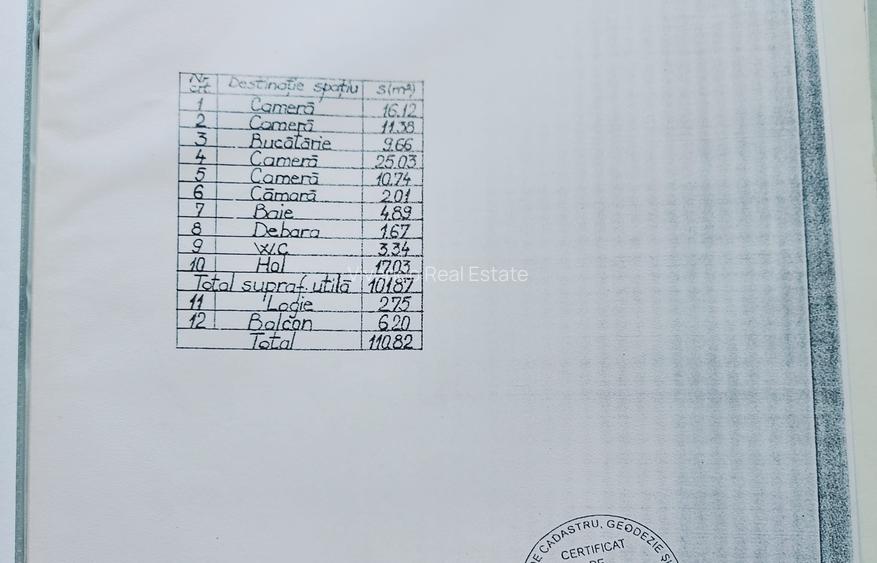 Nr. crt. Destinație spațiu S(m²)
1 Cameră 16.12
2 Cameră 11.38
3 Bucătărie 9.66
4 Cameră 25.03
5 Cameră 10.74
6 Cămară 2.01
7 Baie 4.89
8 Debara 1.67
9 W.C 3.34
10 Hol 17.03
Total supraf. utilă 101.87
11 Logie 2.75
12 Balcon 6.20
Total 110.82
Real Estate
DE CADASTRU, GEODEZIE ȘI
CERTIFICAT
DE